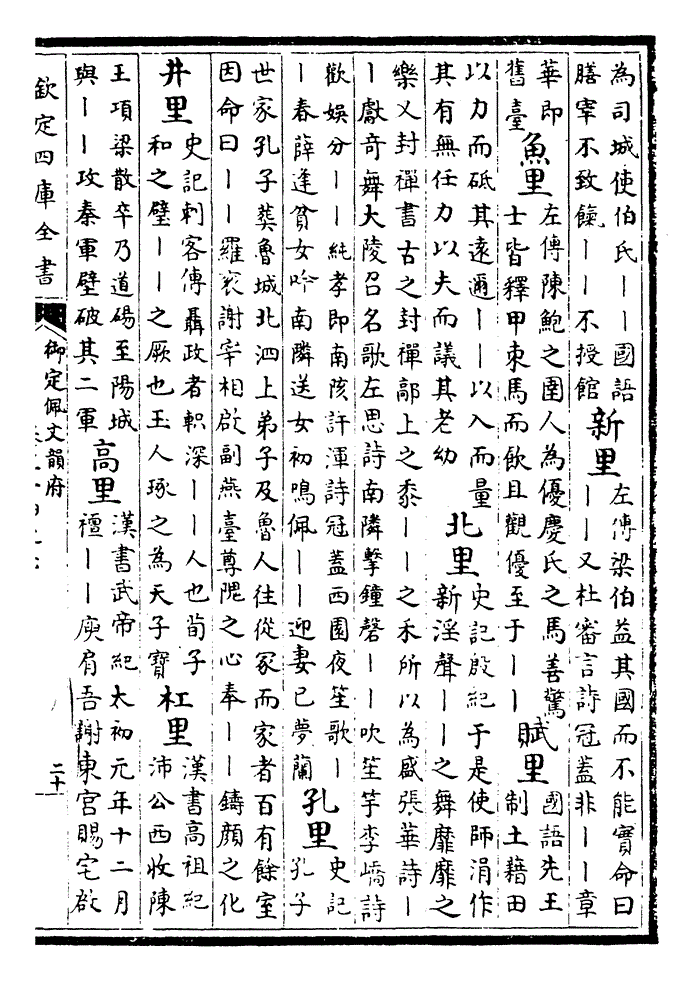 為司城使伯氏丨丨國語
膳宰不致餼丨丨不授館
新里
左傳梁伯益其國而不能實命曰
丨丨又杜審言詩冠蓋非丨丨章
華即
舊臺
魚里
左傳陳鮑之圉人為優慶氏之馬善驚
士皆釋甲束馬而飲且觀優至于丨丨
賦里
國語先王
制土籍田
以力而砥其遠邇丨丨以入而量
其有無任力以夫而議其老幼
北里
史記殷紀于是使師涓作
新淫聲丨丨之舞靡靡之
樂又封禪書古之封禪鄗上之黍丨丨之禾所以為盛張華詩丨
丨獻奇舞大陵召名歌左思詩南隣擊鐘磬丨丨吹笙竽李嶠詩
歡娛分丨丨純孝即南陔許渾詩冠蓋西園夜笙歌丨
丨春薛逢貧女吟南隣送女初鳴佩丨丨迎妻已夢蘭
孔里
史記
孔子
世家孔子葬魯城北泗上弟子及魯人往從冢而家者百有餘室
因命曰丨丨羅衮謝宰相啟副燕臺尊隗之心奉丨丨鑄顏之化
井里
史記刺客傳聶政者軹深丨丨人也荀子
和之璧丨丨之厥也玉人琢之為天子寶
杠里
漢書高祖紀
沛公西收陳
王項梁散卒乃道碭至陽城
與丨丨攻秦軍壁破其二軍
高里
漢書武帝紀太初元年十二月
襢丨丨庾肩吾謝東宮賜宅啟
欽定四庫全書
御定佩文韻府
二十